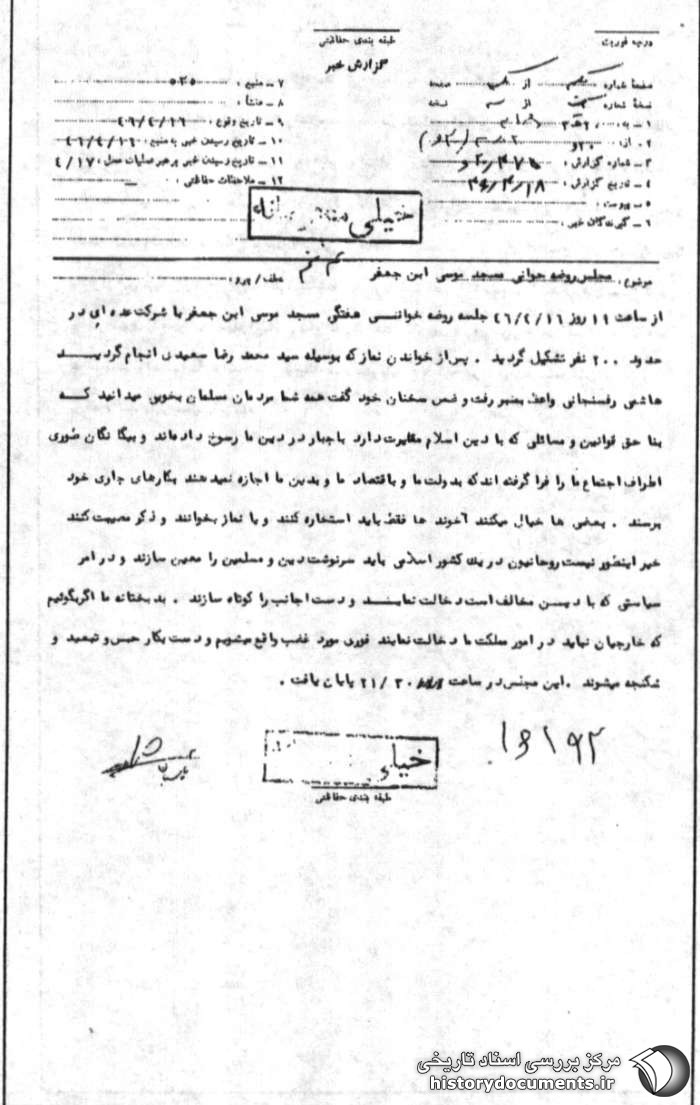 درجه فوریت
طبقه بندی حفاظتی
گزارش خبر
صفحه شماره یکم از یک صفحه
نسخه شماره از سه نسخه
۱ - به :
۲ - از :
۳ - شماره گزارش :
۴ - تاریخ گزارش : ۴۶/۴/۱۸
۵ - پیوست :
۶ - گیرندگان خبر :
۷ - منبع :
۸ - منشأ :
۹ - تاریخ وقوع : ۴۶/۴/۱۶
۱۰ - تاریخ رسیدن خبر به منبع : ۴۶/۴/۱۶
۱۱ - تاریخ رسیدن خبر به رهبر عملیات محل : ۴/۱۷
۱۲ - ملاحظات حفاظتی :
خیلی محرمانه
موضوع : مجلس روضه خوانی مسجد موسی ابن جعفر
عطف / پیرو :
از ساعت ۱۹ روز ۴۶/۴/۱۶ جلسه روضه خوانی هفتگی مسجد موسی ابن جعفر با شرکت عده ای در
حدود ۲۰۰ نفر تشکیل گردید . پس از خواندن نماز که بوسیله سید محمد رضا سعیدی انجام گردید
هاشمی رفسنجانی واعظ بمنبر رفت و ضمن سخنان خود گفت همه شما مردمان مسلمان بخوبی میدانید که
بنا حق قوانین و مسائلی که با دین اسلام مغایرت دارد باجبار در دین ما رسوخ داده‌اند و بیگانگان طوری
اطراف اجتماع ما را فرا گرفته اند که بدولت ما و باقتصاد ما و بدین ما اجازه نمیدهند بکارهای جاری خود
برسند . بعضی ها خیال میکنند آخوند ها فقط باید استخاره کنند و یا نماز بخوانند و ذکر مصیبت کنند
خیر اینطور نیست روحانیون در یک کشور اسلامی باید سرنوشت دین و مسلمین را معین سازند و در امر
سیاستی که با دین مخالف است دخالت نمایند و دست اجانب را کوتاه سازند . بدبختانه ما اگر بگوئیم
که خارجیان نباید در امور مملکت ما دخالت نمایند فوری مورد غضب واقع میشویم و دست بکار حبس و تبعید و
شکنجه میشوند . این مجلس در ساعت ۲۱/۳۰ پایان یافت .
خیلی
طبقه بندی حفاظتی
مرکز بررسی اسناد تاریخی
historydocuments.ir